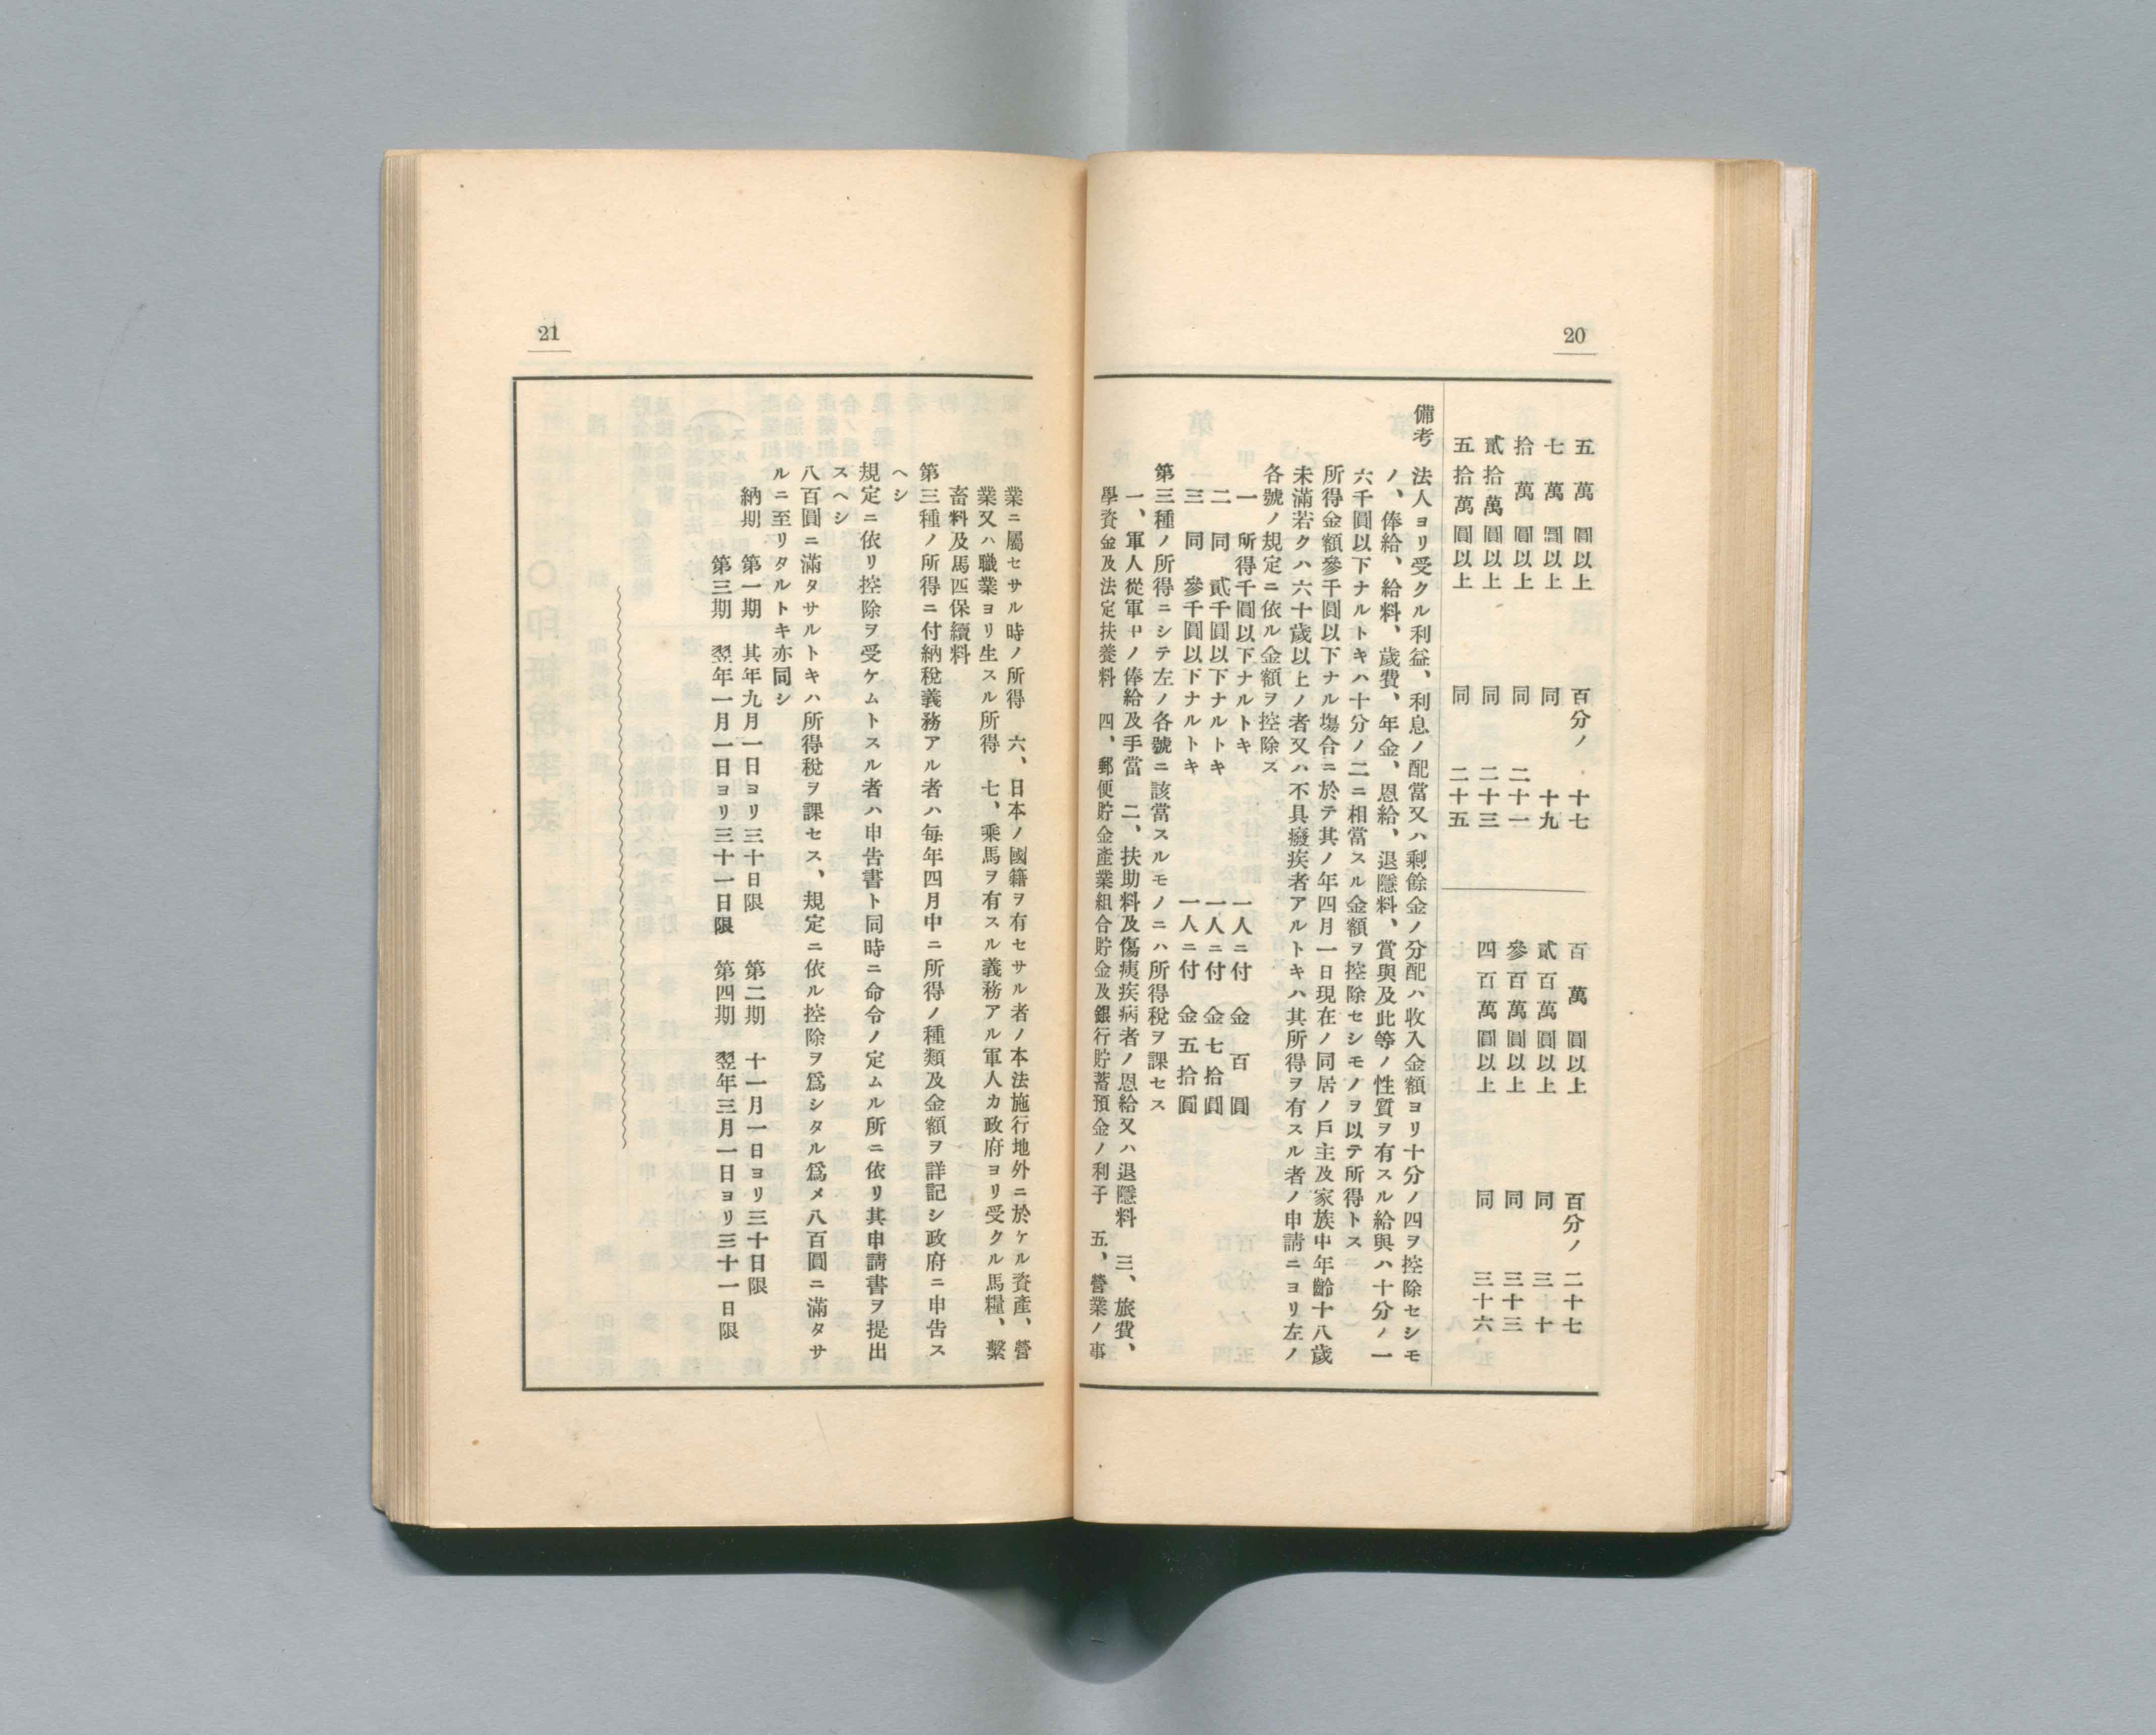 20
五萬圓以上 百分ノ 十七
七萬圓以上 同 十九
拾萬圓以上 同 二十一
貳拾萬圓以上 同 二十三
五拾萬圓以上 同 二十五
百萬圓以上 百分ノ 二十七
貳百萬圓以上 同 三十
參百萬圓以上 同 三十三
四百萬圓以上 同 三十六
備考 法人ヨリ受クル利益、利息ノ配當又ハ剩餘金ノ分配ハ收入金額ヨリ十分ノ四ヲ控除セシモ
ノ、俸給、給料、歲費、年金、恩給、退隱料、賞與及此等ノ性質ヲ有スル給與ハ十分ノ一
六千圓以下ナルトキハ十分ノ二ニ相當スル金額ヲ控除セシモノヲ以テ所得トス
所得金額參千圓以下ナル塲合ニ於テ其ノ年四月一日現在ノ同居ノ戶主及家族中年齡十八歲
未滿若クハ六十歲以上ノ者又ハ不具癈疾者アルトキハ其所得ヲ有スル者ノ申請ニヨリ左ノ
各號ノ規定ニ依ル金額ヲ控除ス
一 所得千圓以下ナルトキ 一人ニ付 金百圓
二 同 貳千圓以下ナルトキ 一人ニ付 金七拾圓
三 同 參千圓以下ナルトキ 一人ニ付 金五拾圓
第三種ノ所得ニシテ左ノ各號ニ該當スルモノニハ所得稅ヲ課セス
一、軍人從軍中ノ俸給及手當 二、扶助料及傷痍疾病者ノ恩給又ハ退隱料 三、旅費、
學資金及法定扶養料 四、郵便貯金產業組合貯金及銀行貯蓄預金ノ利子 五、營業ノ事
21
業ニ屬セサル時ノ所得 六、日本ノ國籍ヲ有セサル者ノ本法施行地外ニ於ケル資產、營
業又ハ職業ヨリ生スル所得 七、乘馬ヲ有スル義務アル軍人カ政府ヨリ受クル馬糧、繫
畜料及馬匹保續料
第三種ノ所得ニ付納稅義務アル者ハ每年四月中ニ所得ノ種類及金額ヲ詳記シ政府ニ申告ス
ヘシ
規定ニ依リ控除ヲ受ケムトスル者ハ申告書ト同時ニ命令ノ定ムル所ニ依リ其申請書ヲ提出
スヘシ
八百圓ニ滿タサルトキハ所得稅ヲ課セス、規定ニ依ル控除ヲ爲シタル爲メ八百圓ニ滿タサ
ルニ至リタルトキ亦同シ
納期 第一期 其年九月一日ヨリ三十日限 第二期 十一月一日ヨリ三十日限
第三期 翌年一月一日ヨリ三十一日限 第四期 翌年三月一日ヨリ三十一日限